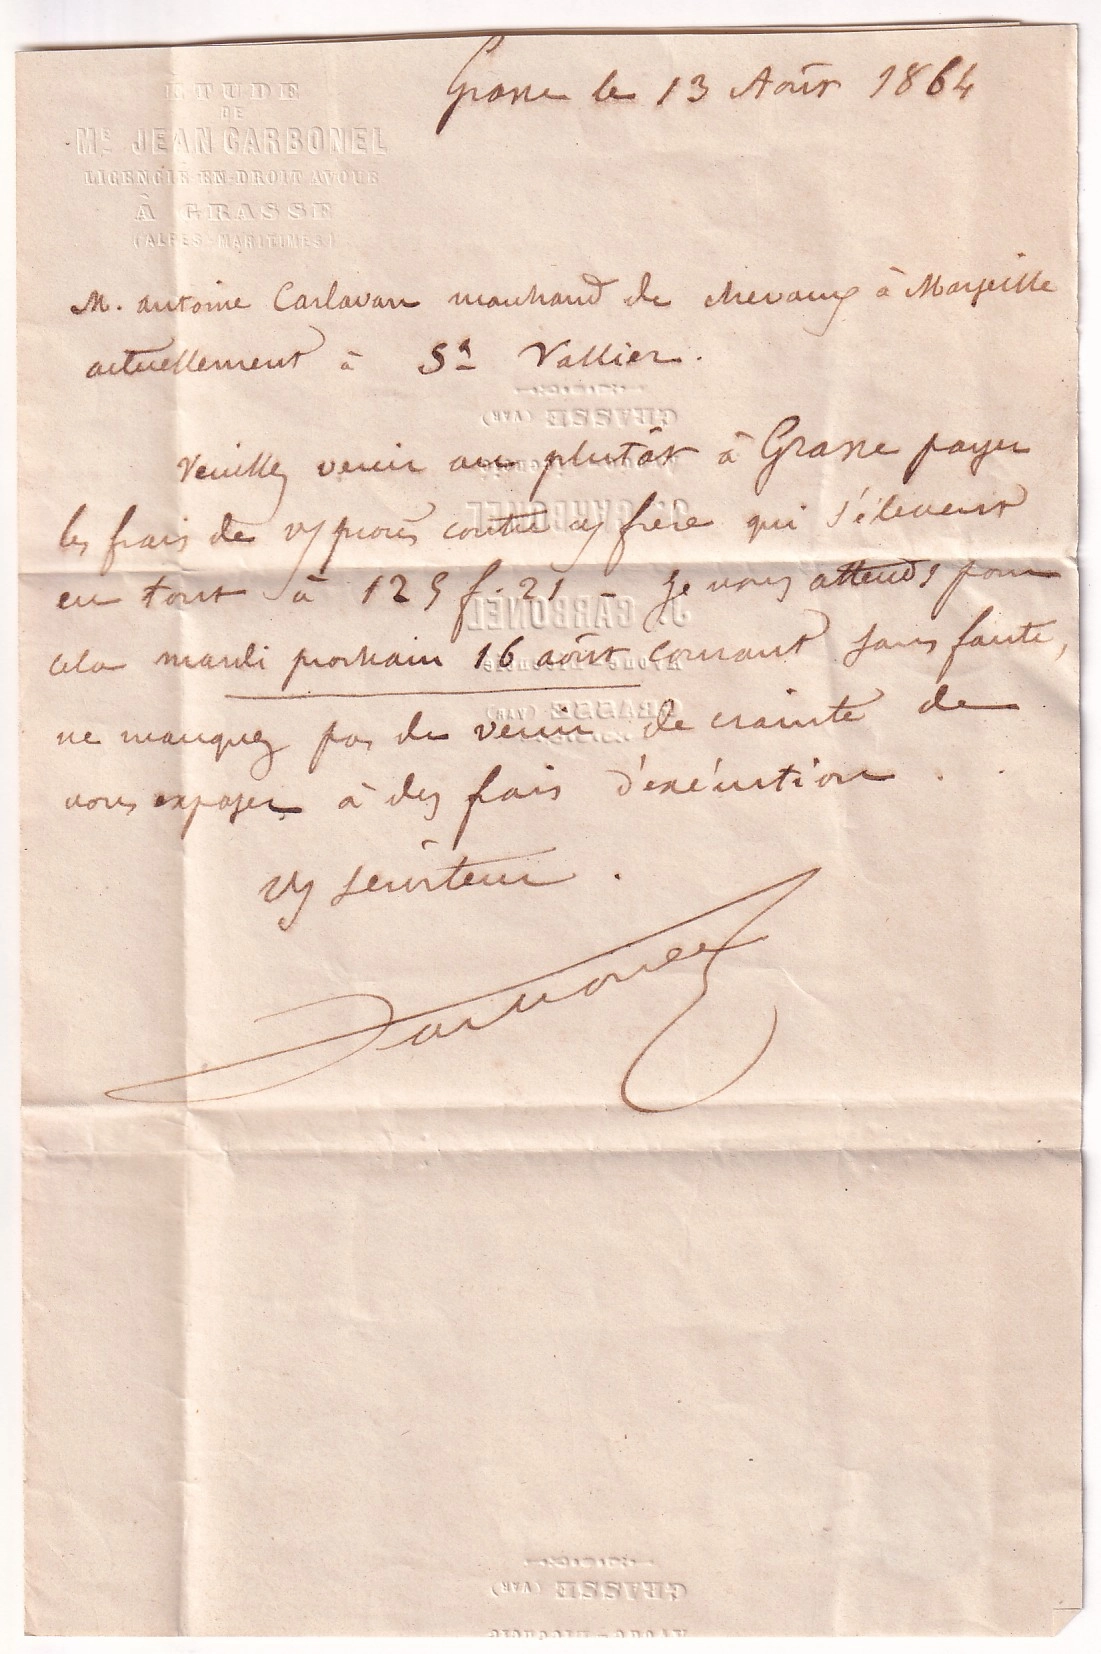 ÉTUDE
DE
Me JEAN CARBONEL
LICENCIÉ EN DROIT AVOUÉ
À GRASSE
(ALPES-MARITIMES)
Grasse le 13 Août 1864
M. antoine Carlavan marchand de chevaux à Marseille
actuellement à St Vallier.
Veuillez venir au plutôt à Grasse payer
les frais de vs procès contre vs frère qui s'élevent
en tout à 125 f. 21 – Je vous attends pour
cela mardi prochain 16 août courant sans faute,
ne manquez pas de venir de crainte de
vous exposer à des frais d'exécution.
Vs serviteur.
GRASSE (VAR)
J. CARBONEL
J. CARBONEL
Avoué-Licencié
GRASSE (VAR)
GRASSE (VAR)
Avoué-Licencié